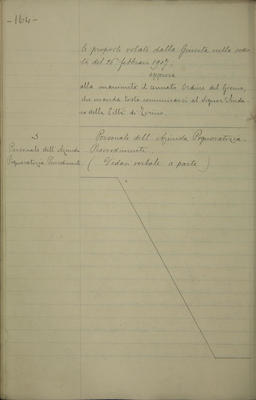 -164-
le proposte votate dalla Giunta nella sedu-
ta del 26 febbraio 1907.
approva
alla unanimità il surriferito Ordine del Giorno,
che manda tosto comunicarsi al Signor Sinda-
co della Città di Torino.
3 Personale dell'Azienda Pignoratizia.
Personale dell'Azienda Provvedimenti.
Pignoratizia Provvedimenti (Vedasi verbale a parte)